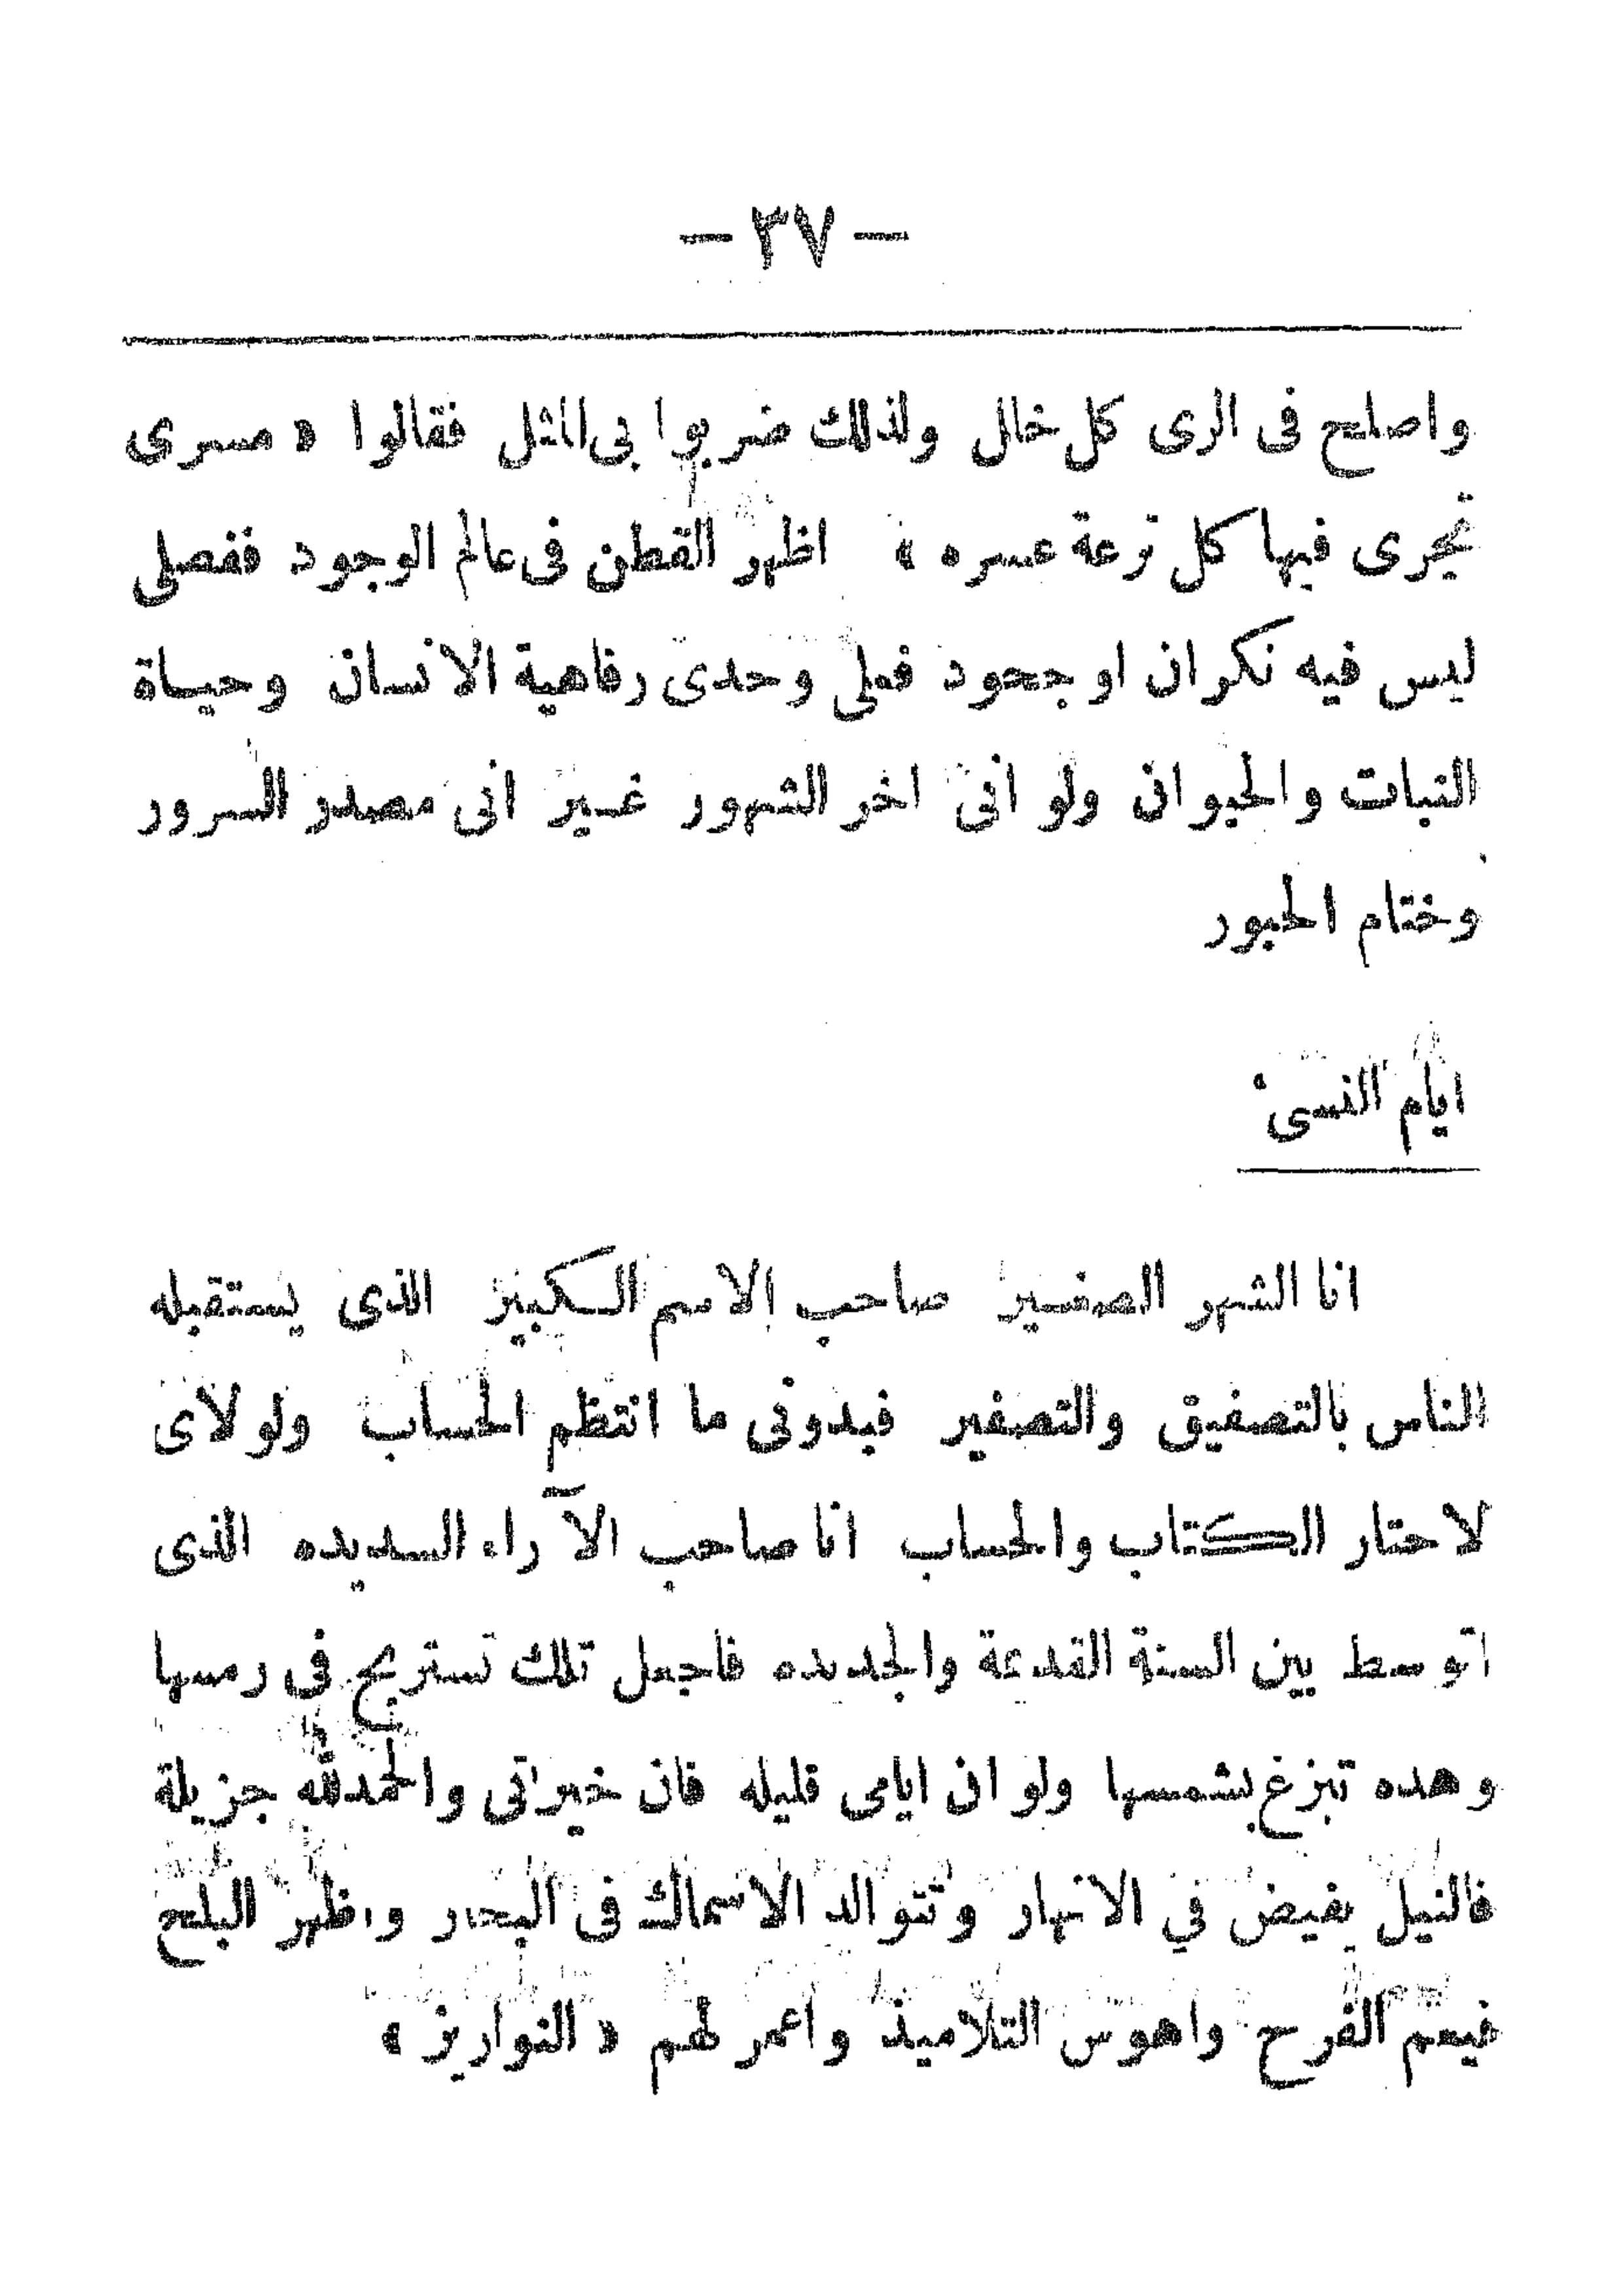 — ٣٧ —
واصلح فى الرى كل خلل ولذلك ضربوا بى المثل فقالوا « مسرى
تجرى فيها كل ترعة عسره » اظهر القطن فى عالم الوجود ففضلى
ليس فيه نكران او جحود فعلى وحدى رفاهية الانسان وحياة
النبات والحيوان ولو انى اخر الشهور غير انى مصدر السرور
وختام الحبور
ايام النسىء
انا الشهر الصغير صاحب الاسم الكبير الذى يستقبله
الناس بالتصفيق والتصفير فبدونى ما انتظم الحساب ولولاى
لاحتار الكتاب والحساب انا صاحب الآراء السديده الذى
اتوسط بين السنة القديمة والجديده فاجعل تلك تستريح فى رمسها
وهده تبزغ بشمسها ولو ان ايامى قليله فان خيراتى والحمدلله جزيلة
فالنيل يفيض في الانهار وتتوالد الاسماك فى البحار واظهر البلح
فيعم الفرح واهوس التلاميذ واعمر لهم « النواريز »